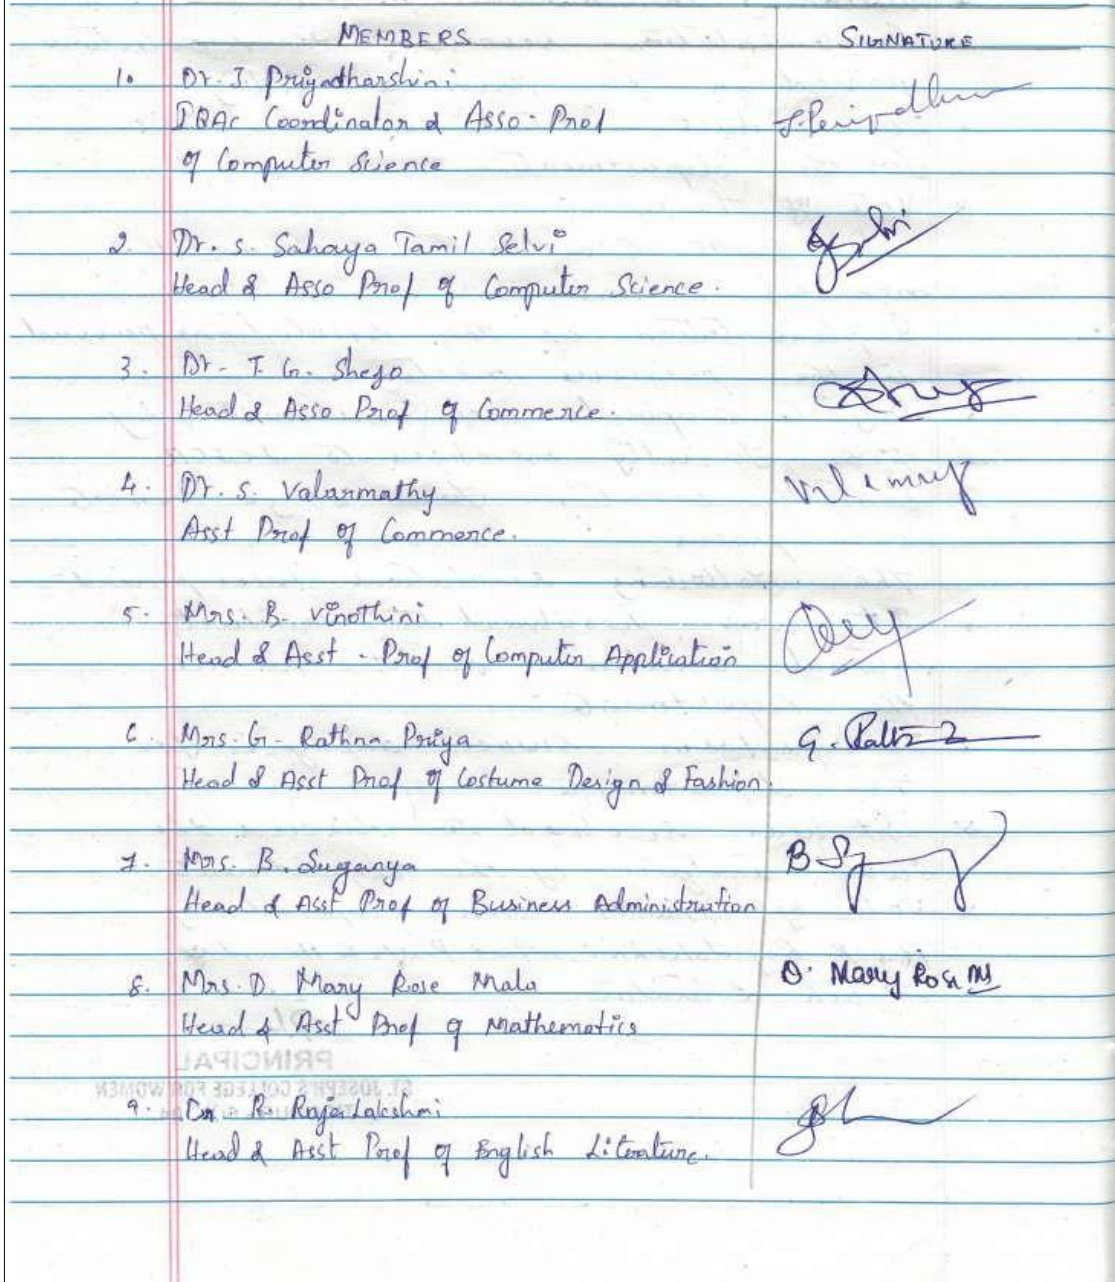 MEMBERS SIGNATURE
1. Dr. J. Priyadharshini
IQAC Coordinator & Asso. Prof
of Computer Science
2. Dr. S. Sahaya Tamil Selvi
Head & Asso Prof of Computer Science.
3. Dr. T. G. Shejo
Head & Asso Prof of Commerce.
4. Dr. S. Valarmathy
Asst Prof of Commerce.
5. Mrs. B. Vinothini
Head & Asst - Prof of Computer Application
6 Mrs. G. Rathna Priya G.
Head & Asst Prof of Costume Design & Fashion.
7. Mrs. B. Suganya B
Head & Asst Prof of Business Administration
8. Mrs. D. Mary Rose Mala D. Mary Rose M
Head & Asst Prof of Mathematics
PRINCIPAL
ST. JOSEPH'S COLLEGE FOR WOMEN
9. Dr R. Raja Lakshmi
Head & Asst Prof of English Literature.